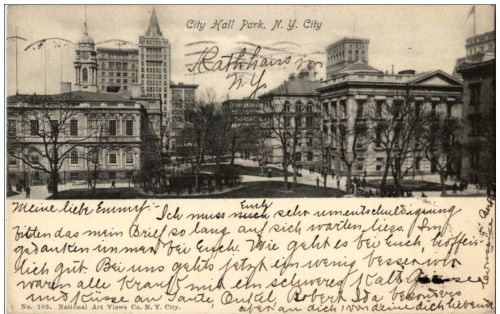 City Hall Park, N. Y. City
Rathhaus von
N.Y.
Meine liebe Emmy- Ich muss Euch sehr um entschuldigung
bitten das mein Brief so lang auf sich warten liess. In
gedanken immer bei Euch. Wie geht es bei Euch, hoffent-
lich gut. Bei uns gehts jetzt ein wenig besser wir
waren alle Krank mit ein schweres Kalt. Grüsse
und Küsse an Tante, Onkel, Robert Ida besonders
aber an dich von deine dich liebende
No. 103. National Art Views Co. N. Y. City.